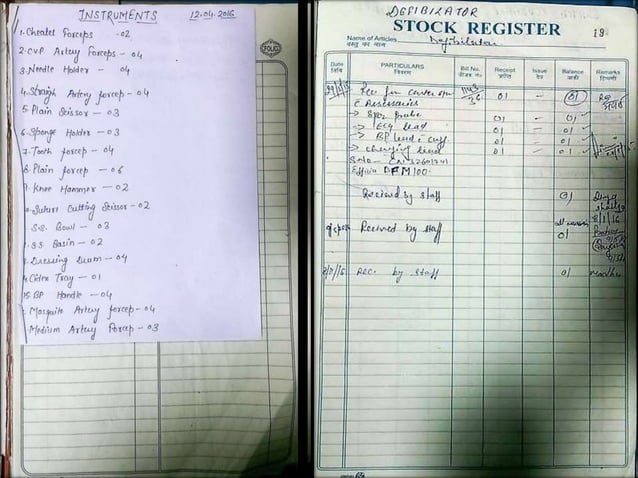 INSTRUMENTS 12.04.2016
1. Cheatel Forceps - 02
2. CVP Artery Forceps - 04
3. Needle Holder - 04
4. Straight Artery forcep - 04
5. Plain Scissor - 03
6. Sponge Holder - 03
7. Tooth forcep - 04
8. Plain forcep - 06
9. Knee Hammer - 02
Suture Cutting Scissor - 02
S.S. Bowl - 03
S.S. Basin - 02
Dressing Drum - 04
Cidex Tray - 01
15. BP Handle - 04
Mosquito Artery forcep - 04
Medium Artery Forcep - 03
FOLIO
DEFIBILATOR
STOCK REGISTER 19
Name of Articles Defibilator
वस्तु का नाम
Date PARTICULARS Bill No. Receipt Issue Balance Remarks
तिथि विवरण बीजक नं० प्राप्ति देय बाकी टिप्पणी
Rec from 1143 01 - 01
36
Accessories
→ SpO2 probe 01 - 01
→ ECG lead 01 - 01
→ BP lead & cuff 01 - 01
→ Charging lead 01 - 01
S.No - CN32601341
DFM100
Received by staff 01
8/1/16
Received by staff 01
Rec. by staff 01